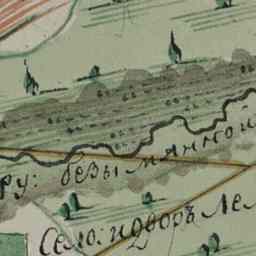 ру: безымянной
Село: идворъ Ле